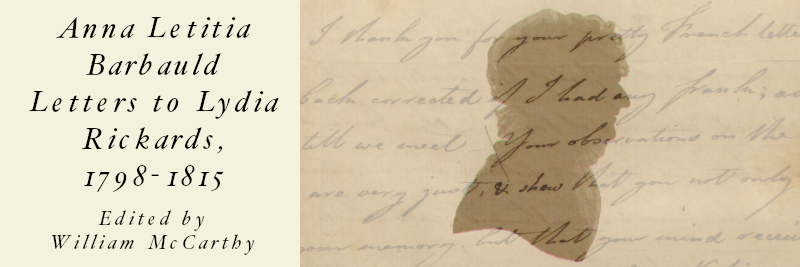 Anna Letitia
Barbauld
Letters to Lydia
Rickards,
1798-1815
Edited by
William McCarthy
I thank you for your pretty French lette
back corrected if I had any frank; as
till we meet. Your observations on the
are very just, & shew that you not only
your memory, but that your mind receiv